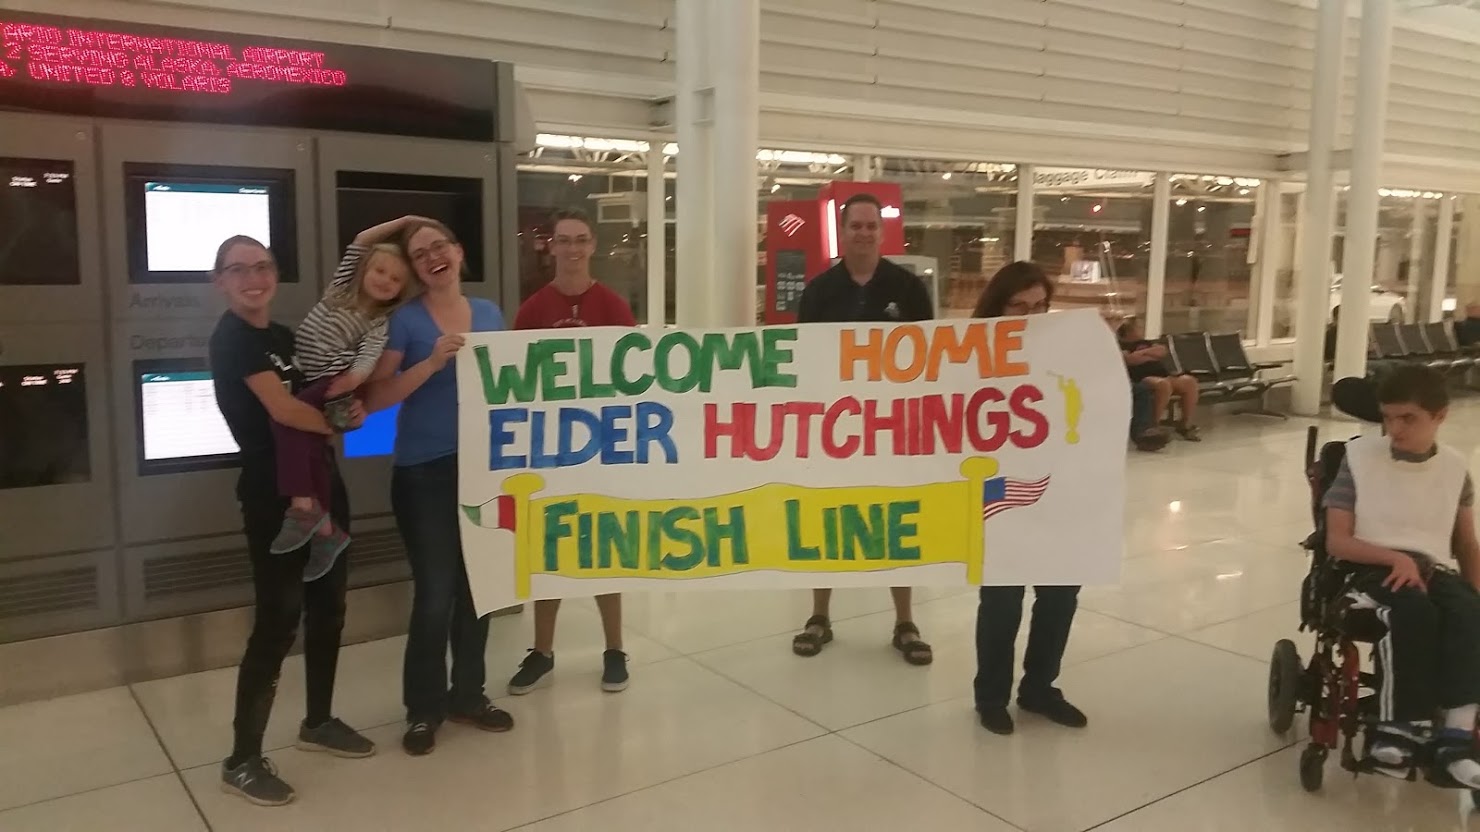 TARIO INTERNATIONAL AIRPORT
2 SERVING ALASKA, AEROMEXICO
UNITED & VOLARIS
Arrivals
Departu
Baggage Claim
WELCOME HOME
ELDER HUTCHINGS!
FINISH LINE